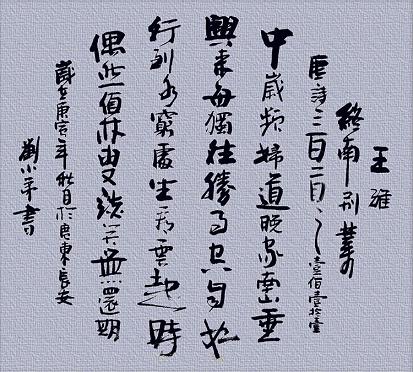 王維
終南別業
唐詩三百首之壹佰壹拾壹
中歲頗好道晚家南山陲
興來每獨往勝事空自知
行到水窮處坐看雲起時
偶然值林叟談笑無還期
歲在庚寅年秋月於廣東長安
劉小平書